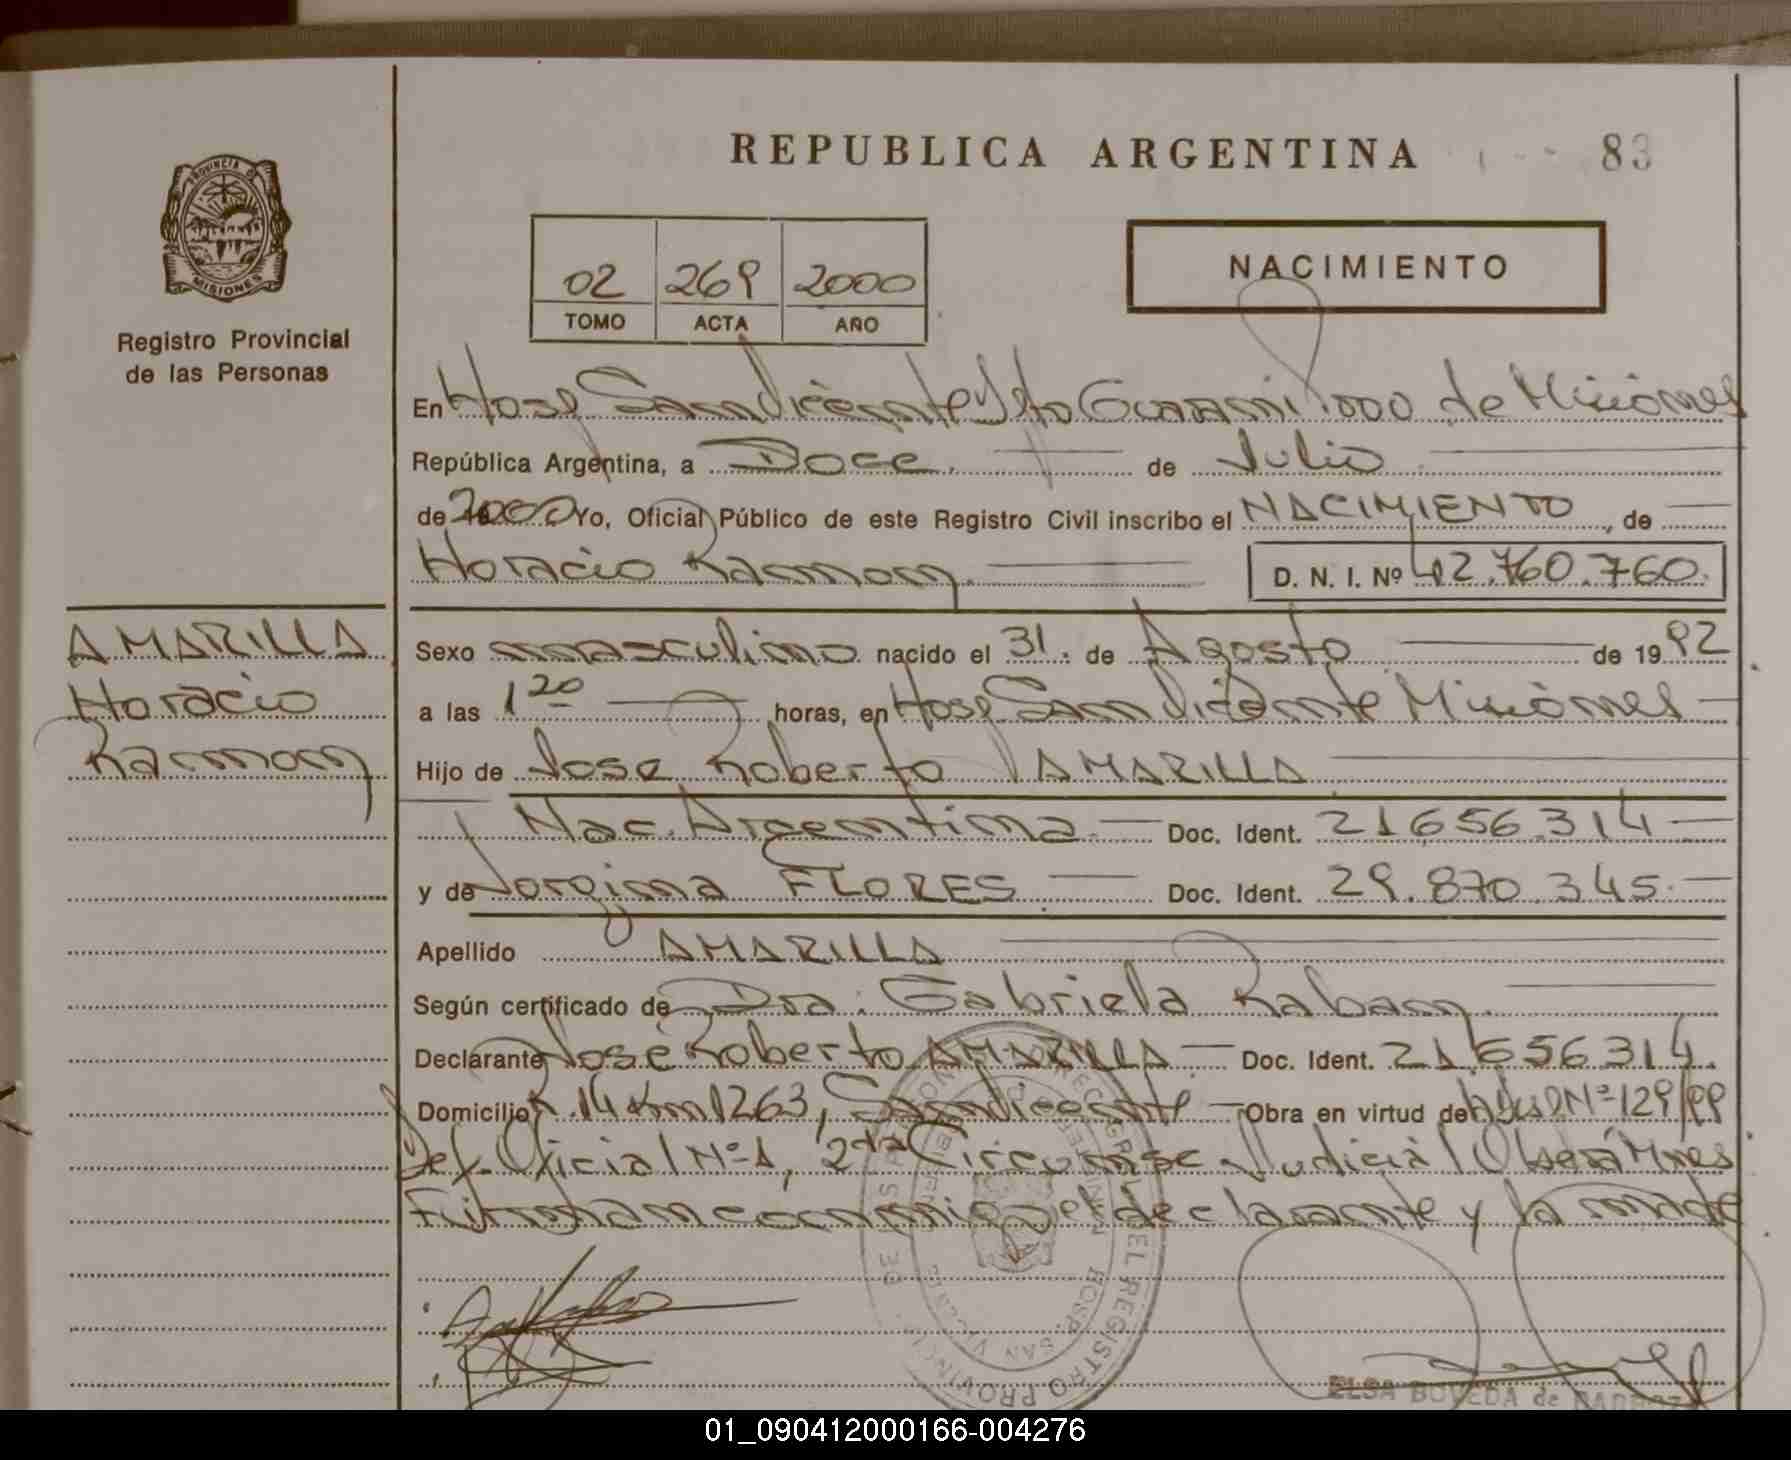 REPUBLICA ARGENTINA 83
PROVINCIA DE
MISIONES
Registro Provincial
de las Personas
NACIMIENTO
02 269 2000
TOMO ACTA AÑO
En Hosp San Vicente Dpto Guaraní 1000 de Misiones
República Argentina, a Doce de Julio
de 2000 Yo, Oficial Público de este Registro Civil inscribo el NACIMIENTO, de
Horacio Ramon. D. N. I. Nº 42.760.760.
AMARILLA
Horacio
Ramon
Sexo masculino nacido el 31. de Agosto de 1992
a las 1 20 horas, en Hosp San Vicente Misiones
Hijo de Jose Roberto AMARILLA
Nac. Argentina Doc. Ident. 21656.314
y de Jorgina FLORES Doc. Ident. 29.870.345.
Apellido AMARILLA
Según certificado de Dra. Gabriela Raban.
Declarante Jose Roberto AMARILLA. Doc. Ident. 21.656.314.
Domicilio R. 14 Km 1263, San Vicente Obra en virtud de Nº 129/99
Def. Oficial Nº 1, 2da Circunsc Judicial Oberá Mnes
Firman conmigo el declarante y la madre
REGISTRO PROVINCIAL DE LAS PERSONAS
HOSP. SAN VICENTE
ELSA BOVEDA de
01_090412000166-004276